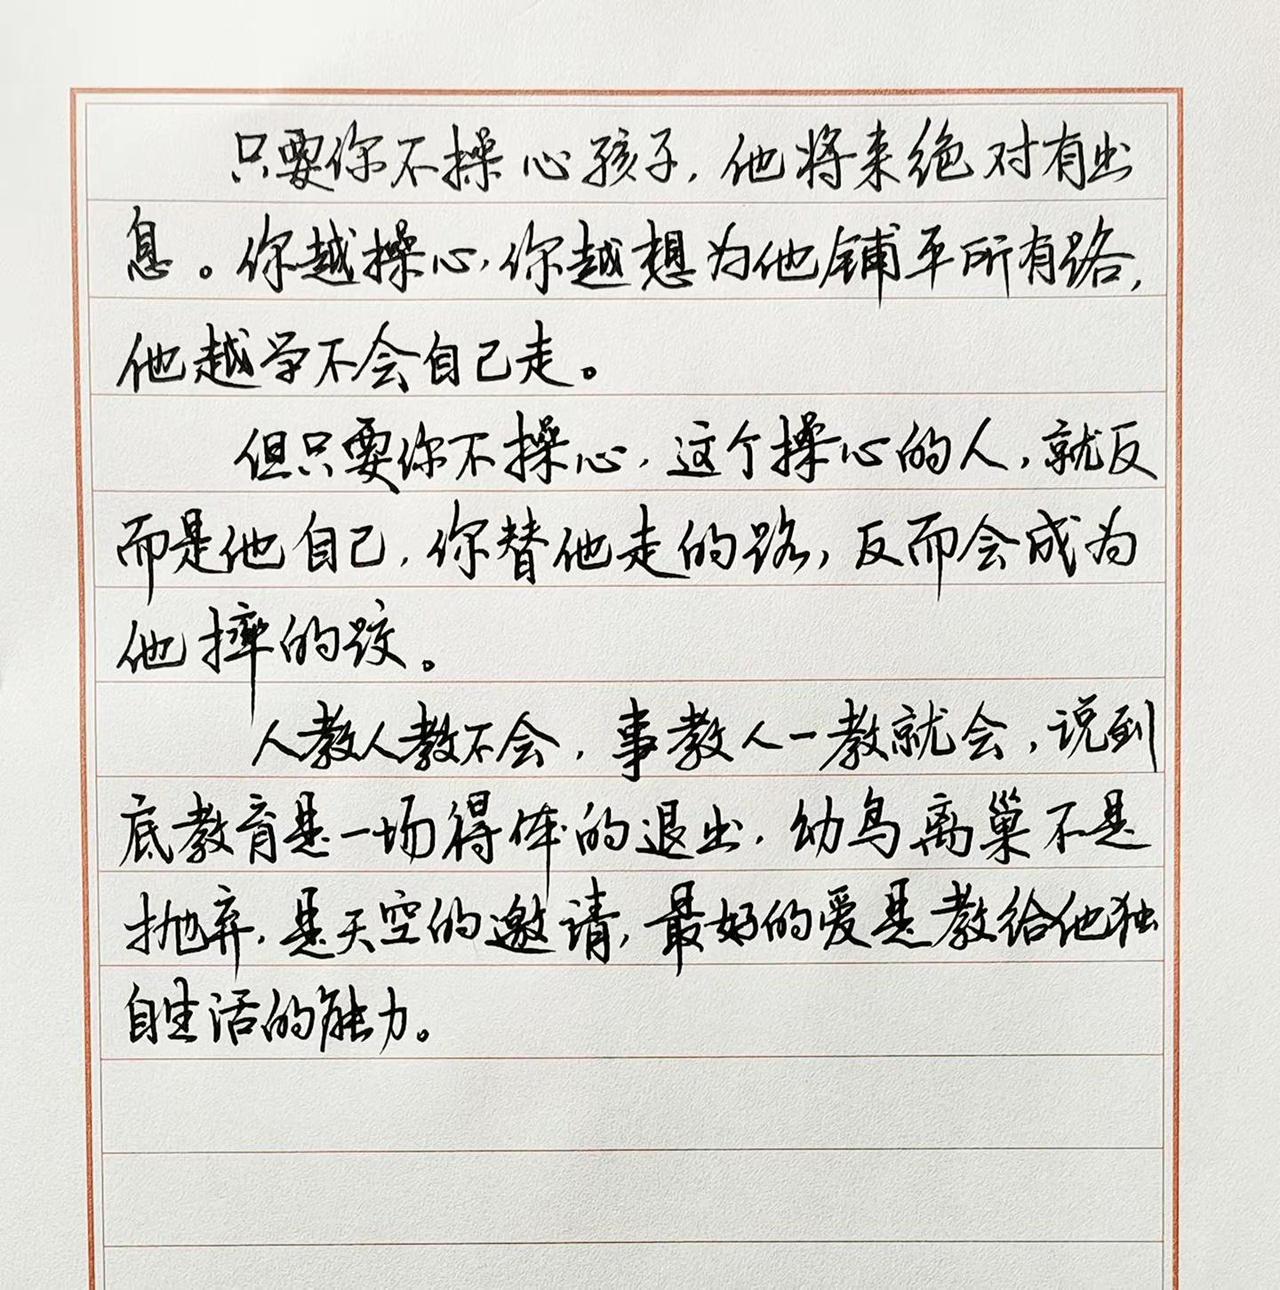 只要你不操心孩子，他将来绝对有出
息。你越操心，你越想为他铺平所有路，
他越学不会自己走。
但只要你不操心，这个操心的人，就反
而是他自己，你替他走的路，反而会成为
他摔的跤。
人教人教不会，事教人一教就会，说到
底教育是一场得体的退出，幼鸟离巢不是
抛弃，是天空的邀请，最好的爱是教给他独
自生活的能力。